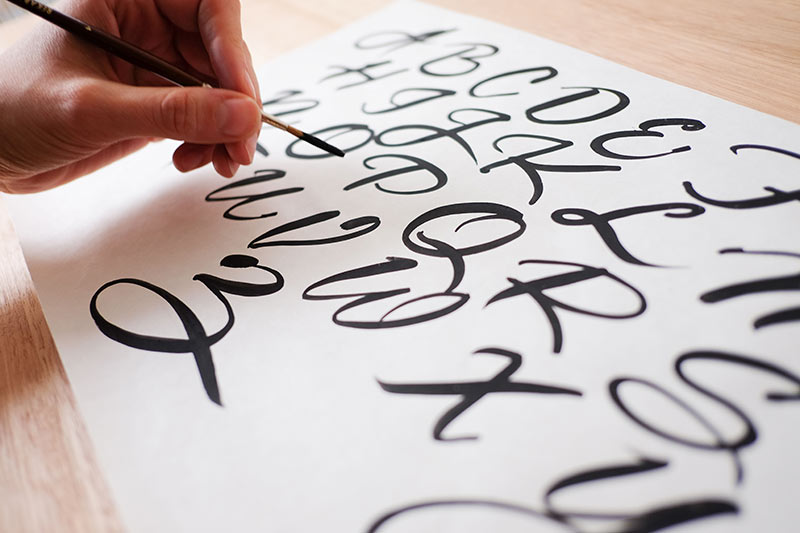 A B C D E F
H I J K L M
N O P Q R S
U V W X